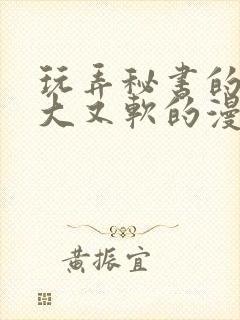 玩弄秘书的
大又軟的漫
黄振宜